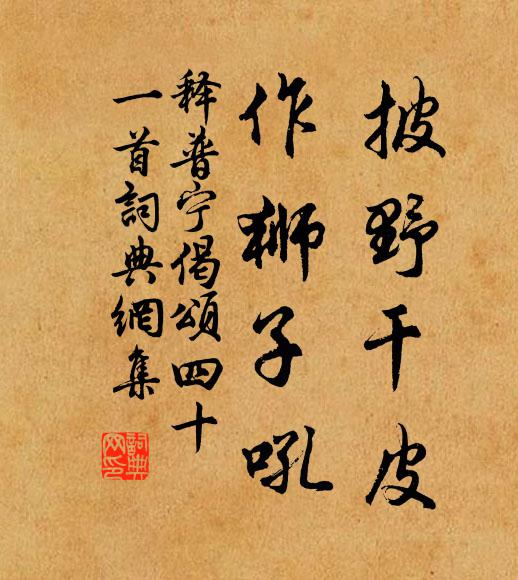 披野干皮
作狮子吼
释普宁偈頌四十
一首詞典網集
詞典
网印